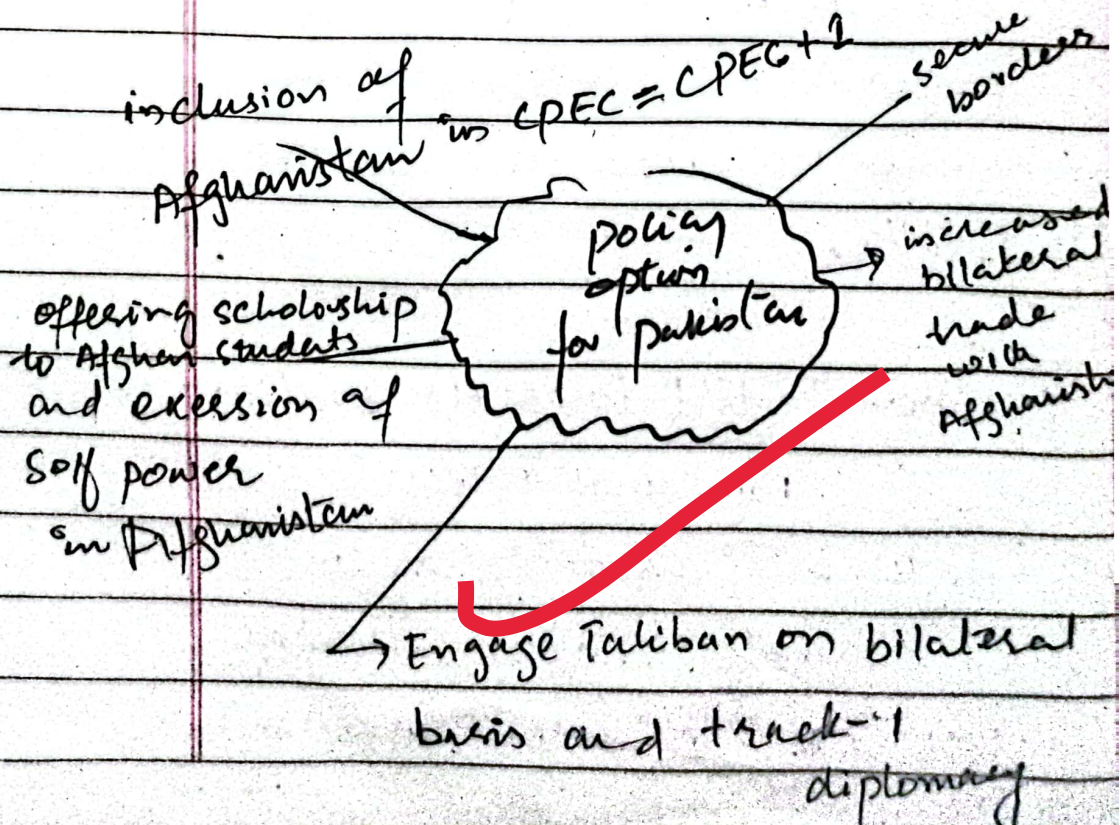 inclusion of
Afghanistan in CPEC = CPEC+1
secure
borders
policy
option
for pakistan
increased
bilateral
trade
with
Afghanist
offering scholarship
to Afghan students
and exerssion of
Soff power
in Afghanistan
Engage Taliban on bilateral
basis and track-1
diplomacy